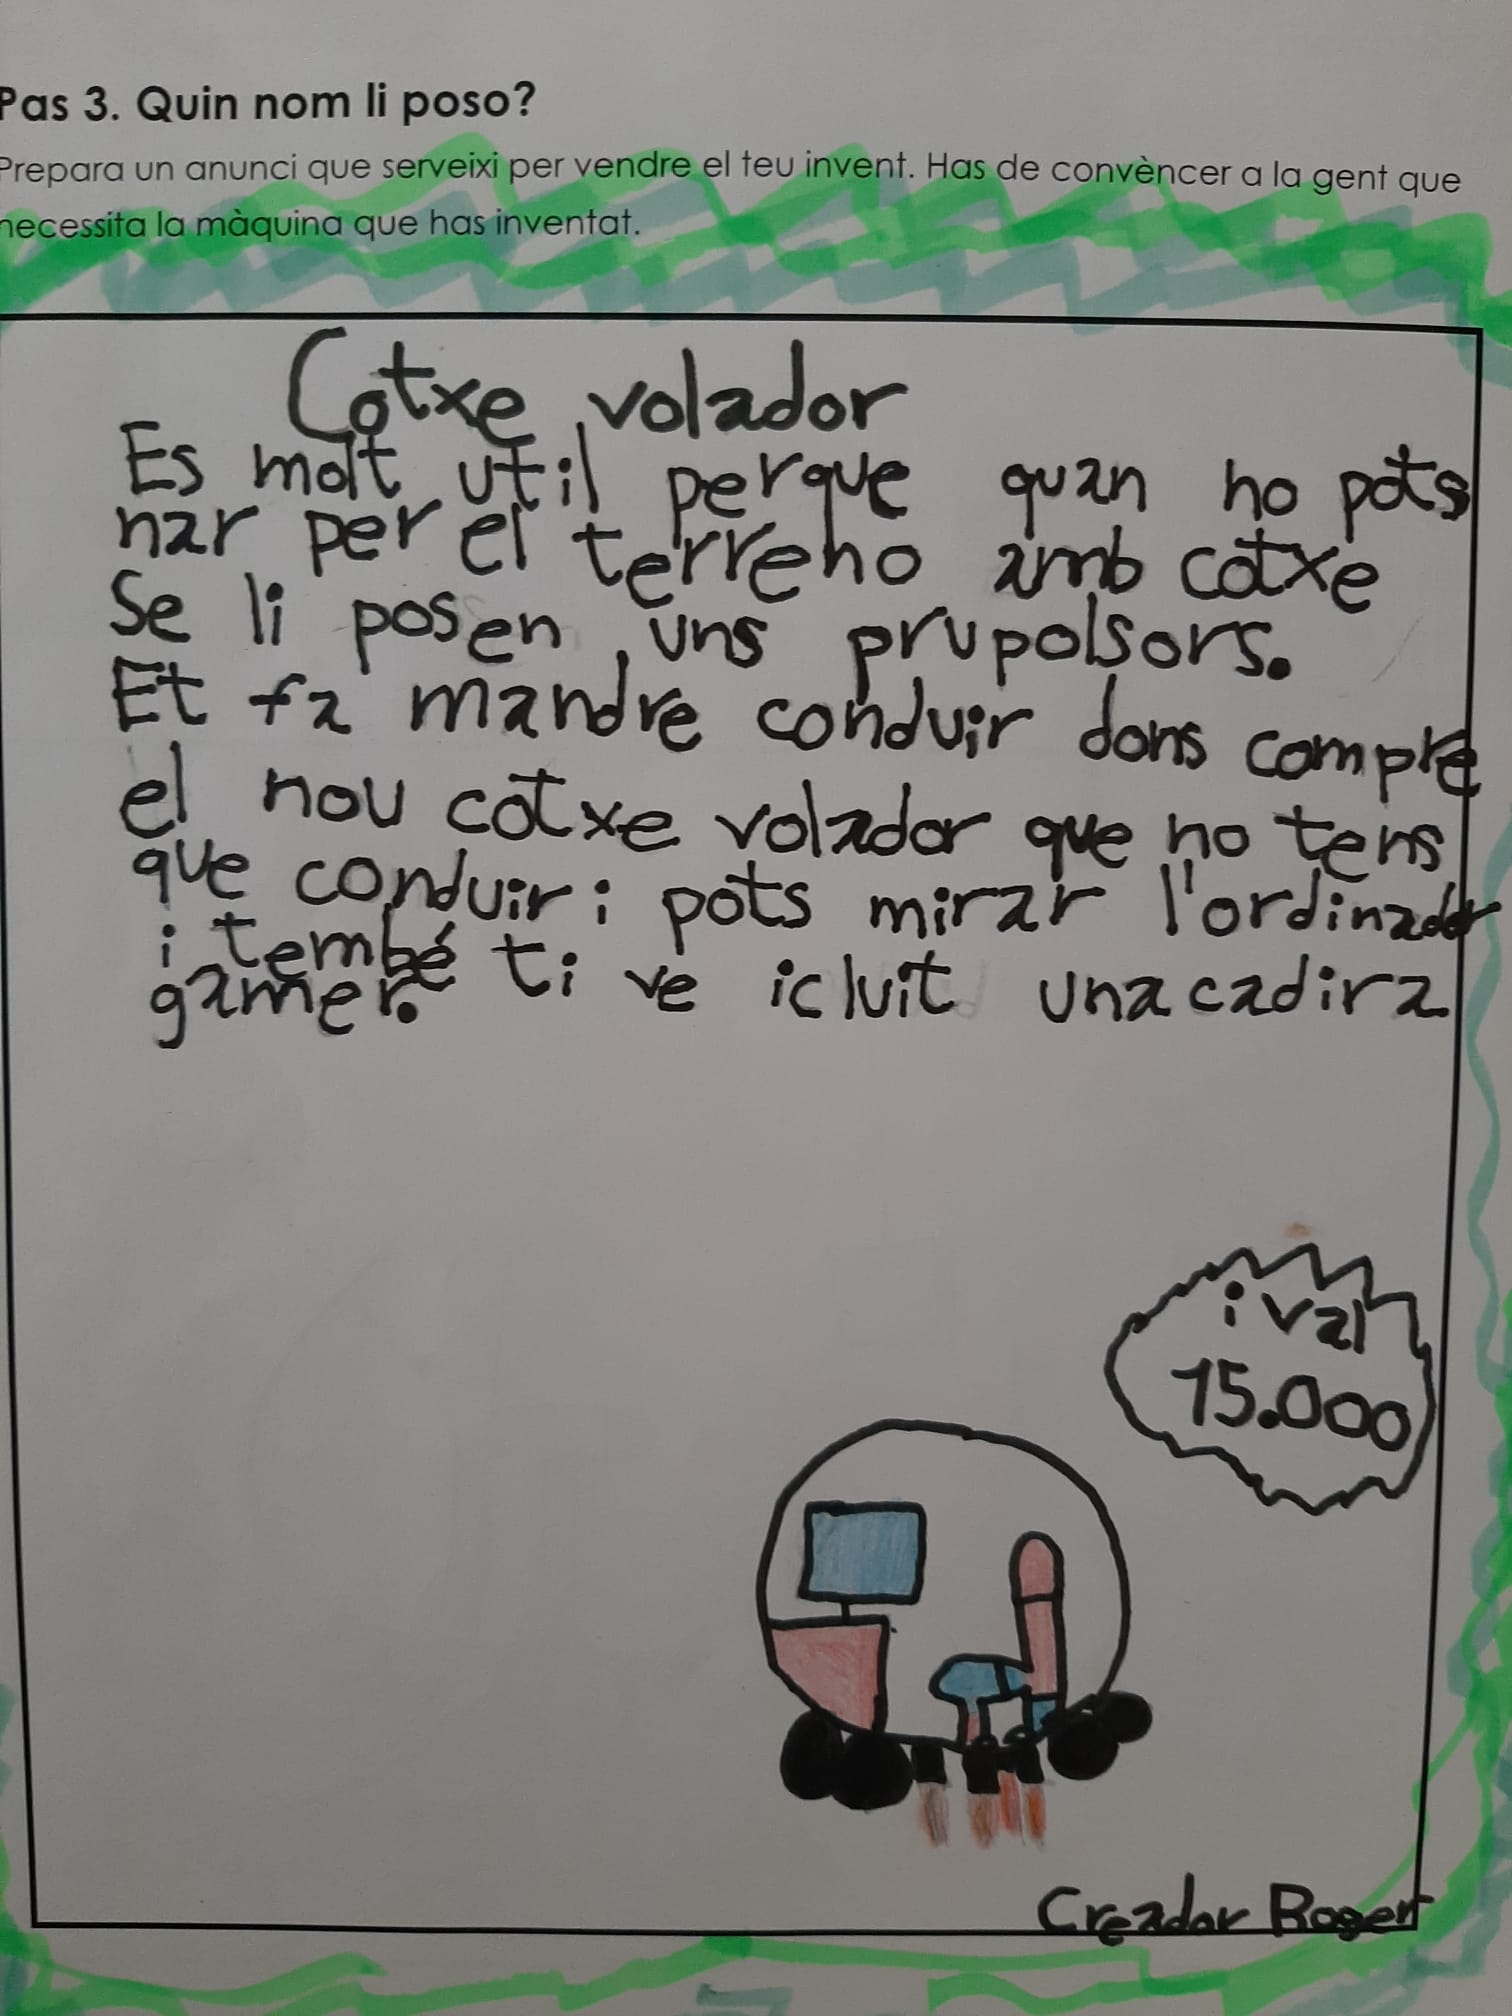 Pas 3. Quin nom li poso?
Prepara un anunci que serveixi per vendre el teu invent. Has de convèncer a la gent que
necessita la màquina que has inventat.
Cotxe volador
Es molt util perque quan no pots
nar per el terreno amb cotxe
Se li posen uns prupolsors.
Et fa mandre conduir dons compre
el nou cotxe volador que no tens
que conduir i pots mirar l'ordinador
i també ti ve icluit una cadira
gamer.
i val
15.000
Creador Roger